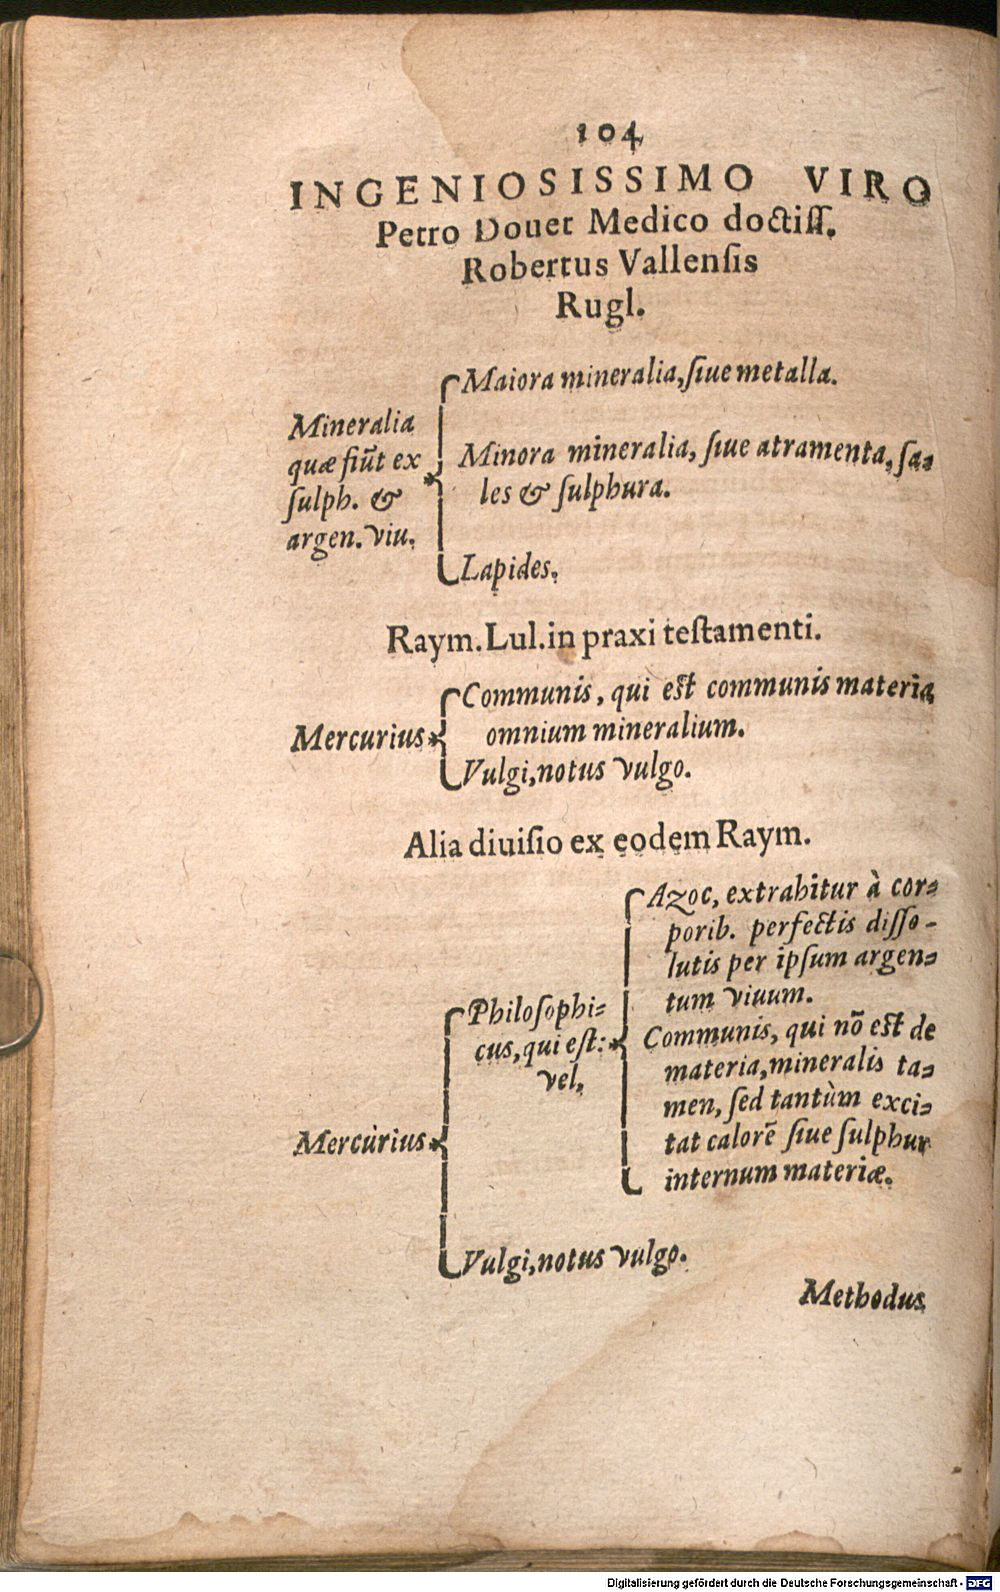 104
INGENIOSISSIMO VIRO
Petro Douet Medico doctiſſ.
Robertus Vallenſis
Rugl.
Mineralia
quæ fiūt ex
ſulph. &
argen. viu.
Maiora mineralia, ſiue metalla.
Minora mineralia, ſiue atramenta, ſa-
les & ſulphura.
Lapides.
Raym. Lul. in praxi teſtamenti.
Mercurius
Communis, qui eſt communis materia
omnium mineralium.
Vulgi, notus vulgo.
Alia diuiſio ex eodem Raym.
Mercurius
Philoſophi-
cus, qui eſt:
vel,
Azoc, extrahitur à cor-
porib. perfectis diſſo-
lutis per ipſum argen-
tum viuum.
Communis, qui nō eſt de
materia, mineralis ta-
men, ſed tantùm exci-
tat calorē ſiue ſulphur
internum materiæ.
Vulgi, notus vulgo.
Methodus
Digitalisierung gefördert durch die Deutsche Forschungsgemeinschaft - DFG